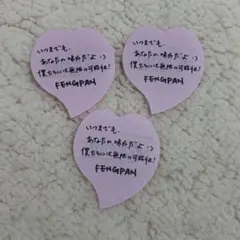 いつまでも、
あなたの味方だよ :)
僕たちには無限の可能性!
FENGPAN
いつまでも、
あなたの味方だよ :)
僕たちには無限の可能性!
FENGPAN
いつまでも、
あなたの味方だよ :)
僕たちには無限の可能性!
FENGPAN